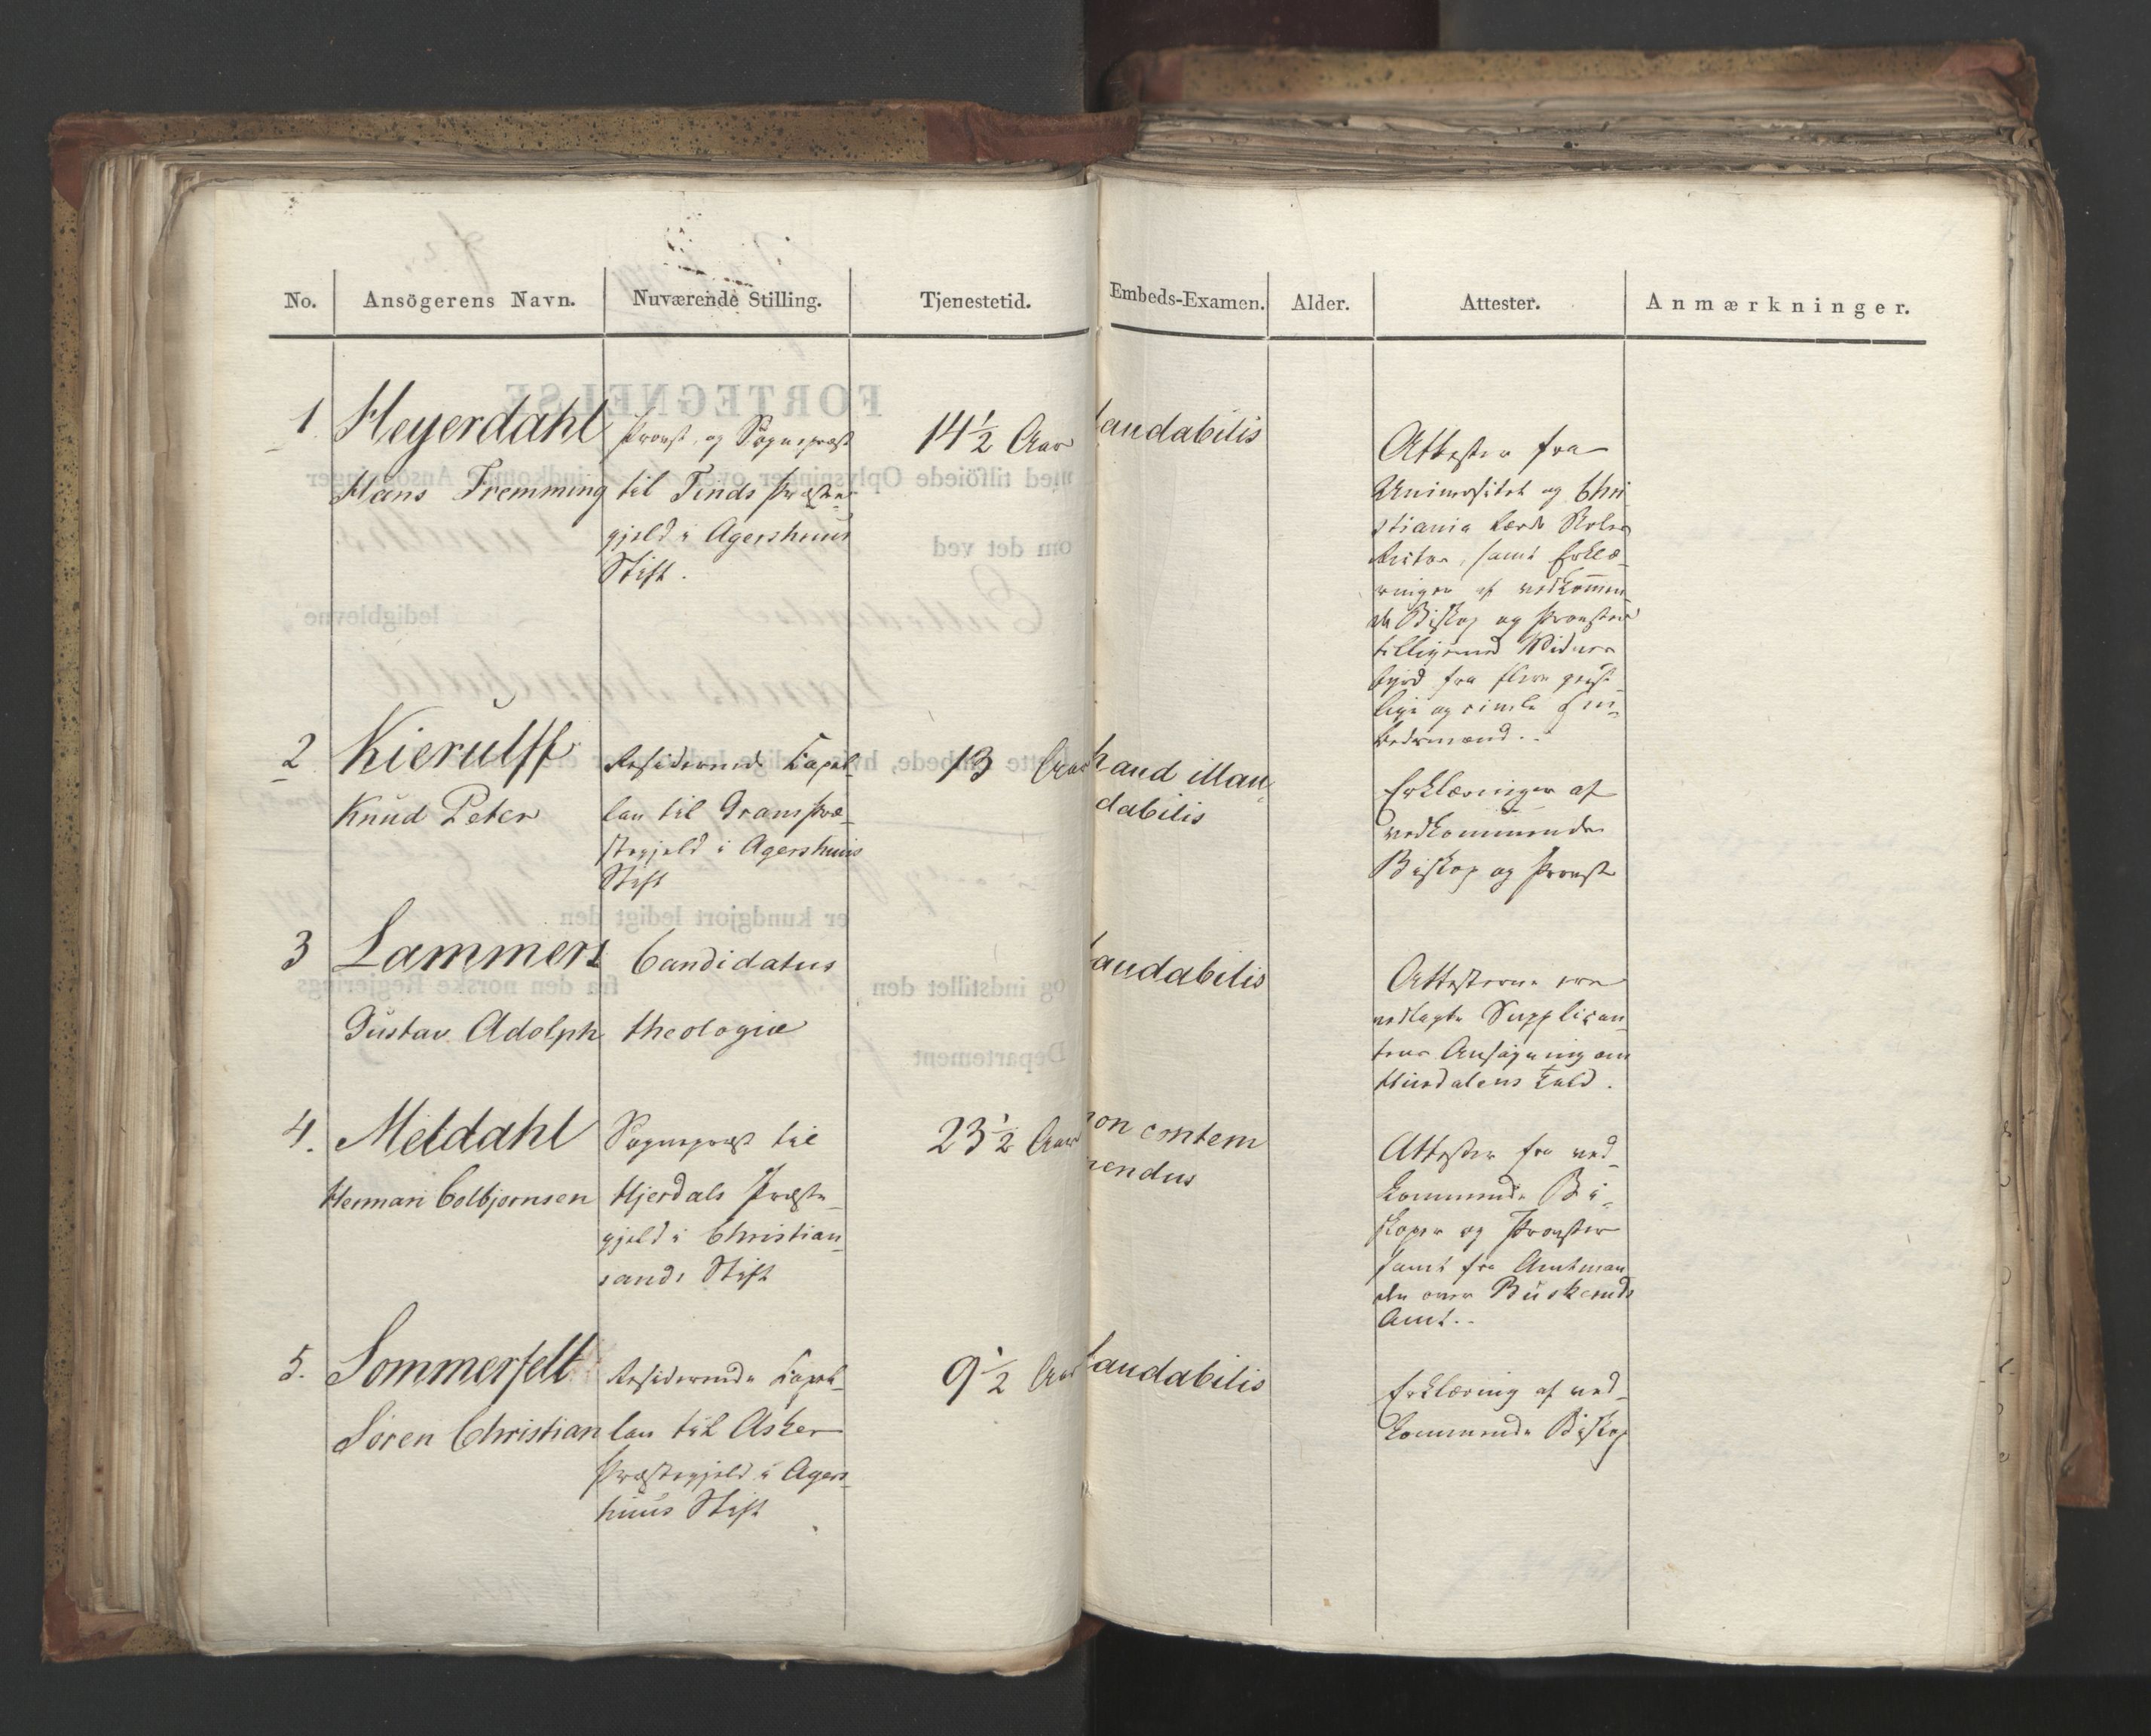 No. Ansögerens Navn. Nuværende Stilling. Tjenestetid. Embeds-Examen. Alder. Attester. Anmærkninger.
1 Heyerdahl
Hans Fremming
Provst og Sognepræst
til Tinds Præste-
gjeld i Agershuus
Stift.
14½ Aar
laudabilis
Attester fra
Universitet og Chri
stiania lærde Skoles
Rector, samt Erklæ-
ringer af vedkommen-
de Biskop og Provster
tilligemed Vidnes-
byrd fra flere geist-
lige og civile Em-
bedsmænd.
2 Kierulff
Knud Peter
Residerende Capel-
lan til Grans Præ-
stegjeld i Agershuus
Stift
13 Aar
haud illau-
dabilis
Erklæringer af
vedkommende
Biskop og Provst
3 Lammers
Gustav Adolph
Candidatus
theologiæ
laudabilis
Attesterne ere
vedlagte Supplican-
tens Ansøgning om
Hurdalens Kald.
4. Meldahl
Herman Colbjørnsen
Sognepræst til
Hjerdals Præste-
gjeld i Christian-
sands Stift
23½ Aar
non contem
nendus
Attester fra ved-
kommende Bi-
skoper og Provster
samt fra Amtman
den over Buskeruds
Amt.
5. Sommerfelt
Søren Christian
Residerende Capel-
lan til Asker
Præstegjeld i Agers-
huus Stift
9½ Aar
laudabilis
Erklæring af ved-
kommende Biskop